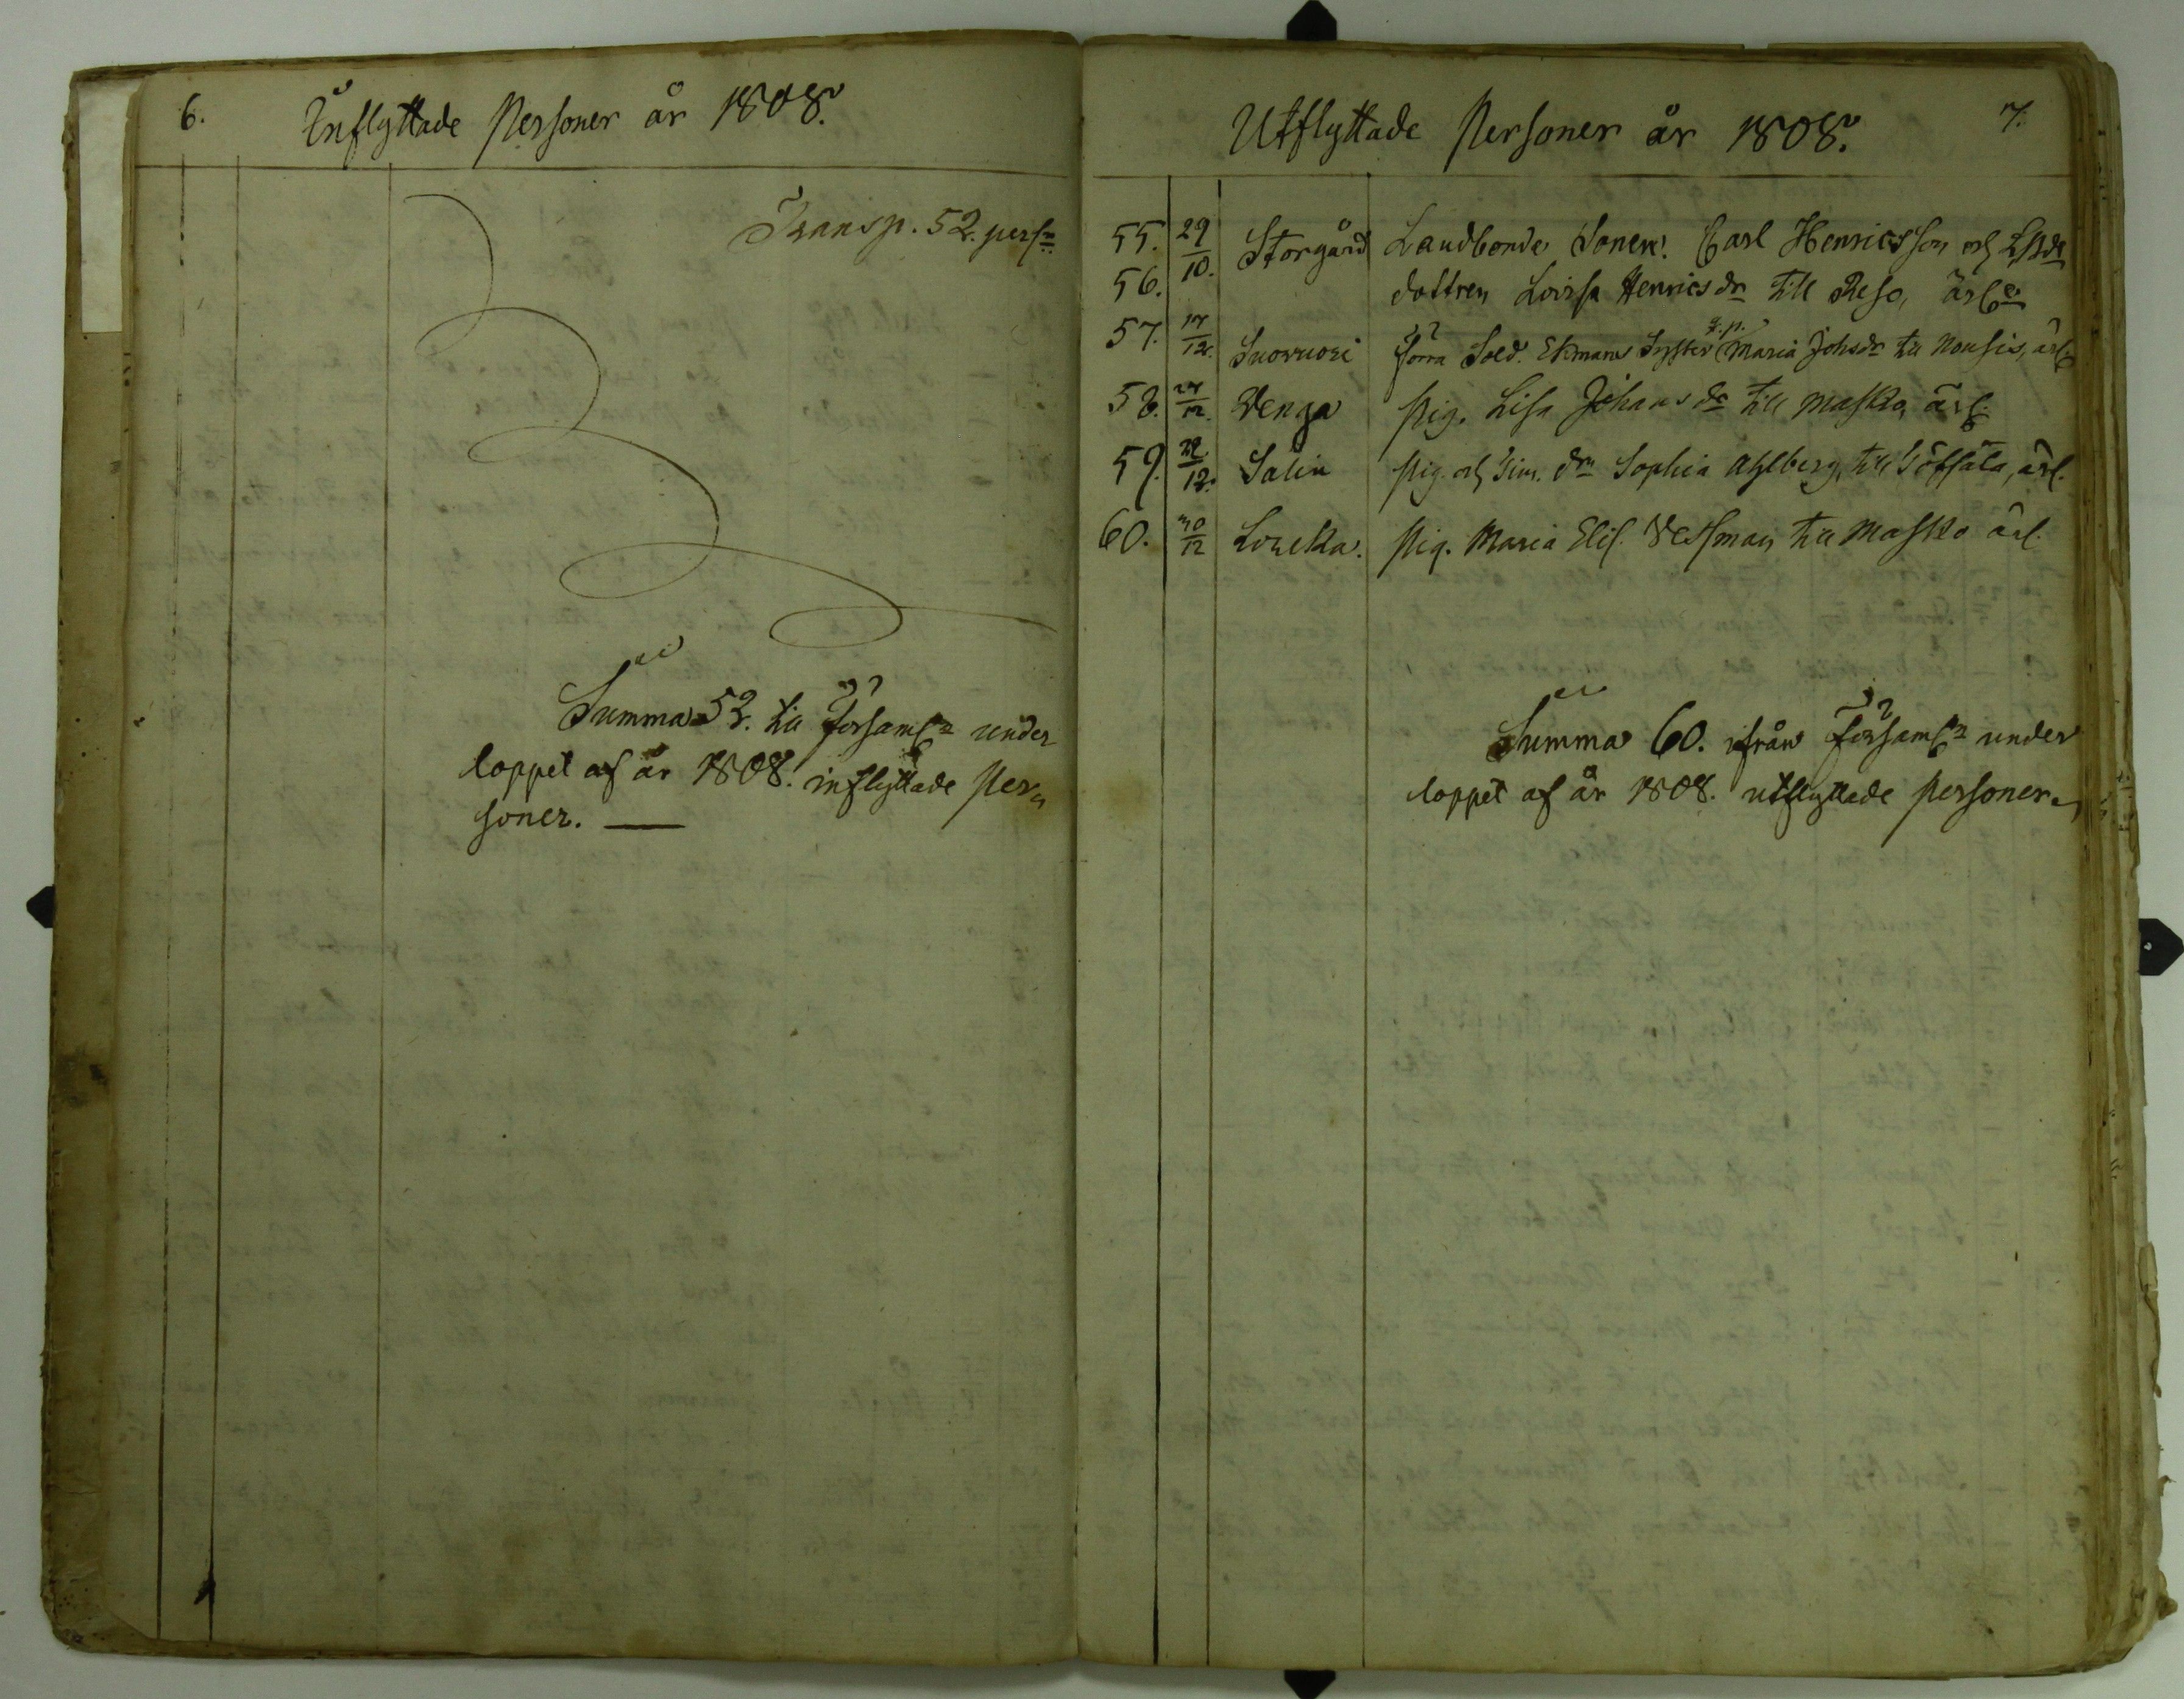 6.
Inflyttade Personer år 1808.
Transp. 52. pers:
Summa 52. till Församl:n under
loppet af år 1808. inflyttade Per-
soner. —
Utflyttade Personer år 1808.
7.
55. 29/10. Storgård Landbonde Sonen Carl Henricsson och
56. dottren Lovisa Henricsdr till Reso,
57. 17/12. Förra Sold. Ekmans Syster Maria Johsdr till Nousis, ärl.
58. 27/12. Wenga Pig. Lisa Johansdr till Masko, ärl.
59. 28/12. Salin Pig. och Sophia Ahlberg, till ärl.
60. 30/12 Pig. Maria Elis. Westman till Masko ärl.
Summa 60. ifrån Församl:n under
loppet af år 1808. utflyttade Personer.